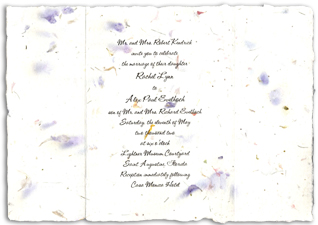 Mr. and Mrs. Robert Kendrick
invite you to celebrate
the marriage of their daughter
Rachel Lynn
to
Alex Paul
son of Mr. and Mrs. Richard
Saturday, the seventh of May
two thousand two
at six o'clock
Lightner Museum Courtyard
Saint Augustine, Florida
Reception immediately following
Casa Monica Hotel